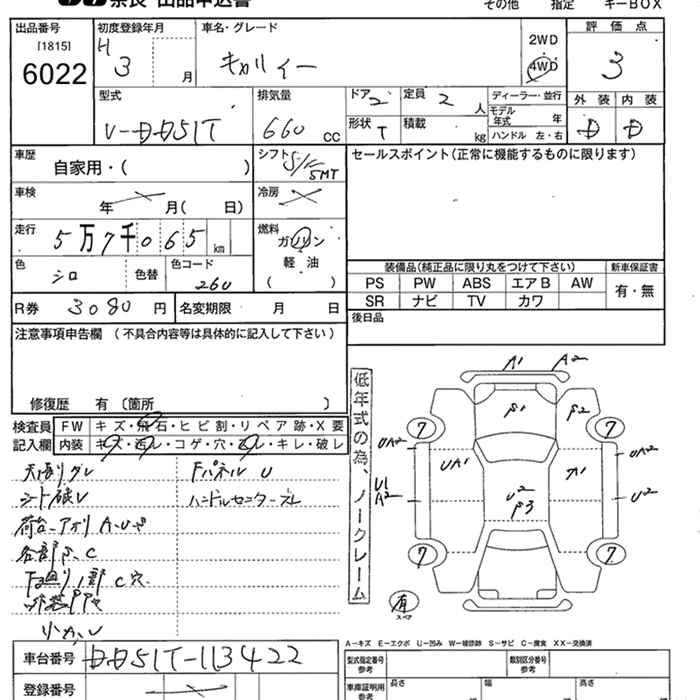 奈良 出品申込書
その他 指定 キーBOX
出品番号 [1815] 6022
初度登録年月 H 3 月
車名・グレード キャリィー
2WD
4WD
評価点 3
型式 V-DD51T
排気量 660 cc
ドア 2
定員 2 人
形状 T
積載 kg
ディーラー・並行
モデル年式 年
ハンドル 左・右
外装 D
内装 D
車歴 自家用・( )
シフト 5MT
車検 年 月( 日)
冷房
走行 5万7千065 km
燃料 ガソリン
軽油
( )
色 シロ 色替
色コード 26U
R券 3080 円
名変期限 月 日
セールスポイント(正常に機能するものに限ります)
装備品(純正品に限り丸をつけて下さい)
新車保証書
PS PW ABS エアB AW
SR ナビ TV カワ
有・無
後日品
注意事項申告欄 (不具合内容等は具体的に記入して下さい)
修復歴 有 〔箇所 〕
検査員記入欄
FW キズ・飛石・ヒビ割・リペア跡・X要
内装 キズ・汚レ・コゲ・穴・スレ・キレ・破レ
天張りタレ
シート破レ
荷台、アオリ A、U、P
各部 P、C
下回り1部 C穴
小カU
Fパネル U
ハンドルセンターズレ
低年式の為、ノークレーム
A1 A2
P1 P2
7 7
UA2 UA1 A1 UA2
U1
A2
U2
P3
U2
7 7
有
スペア
A-キズ E-エクボ U-凹み W-補修跡 S-サビ C-腐食 XX-交換済
車台番号 DD51T-113422
登録番号
型式指定番号 参考
類別区分番号 参考
車庫証明用 参考
長さ 幅 高さ